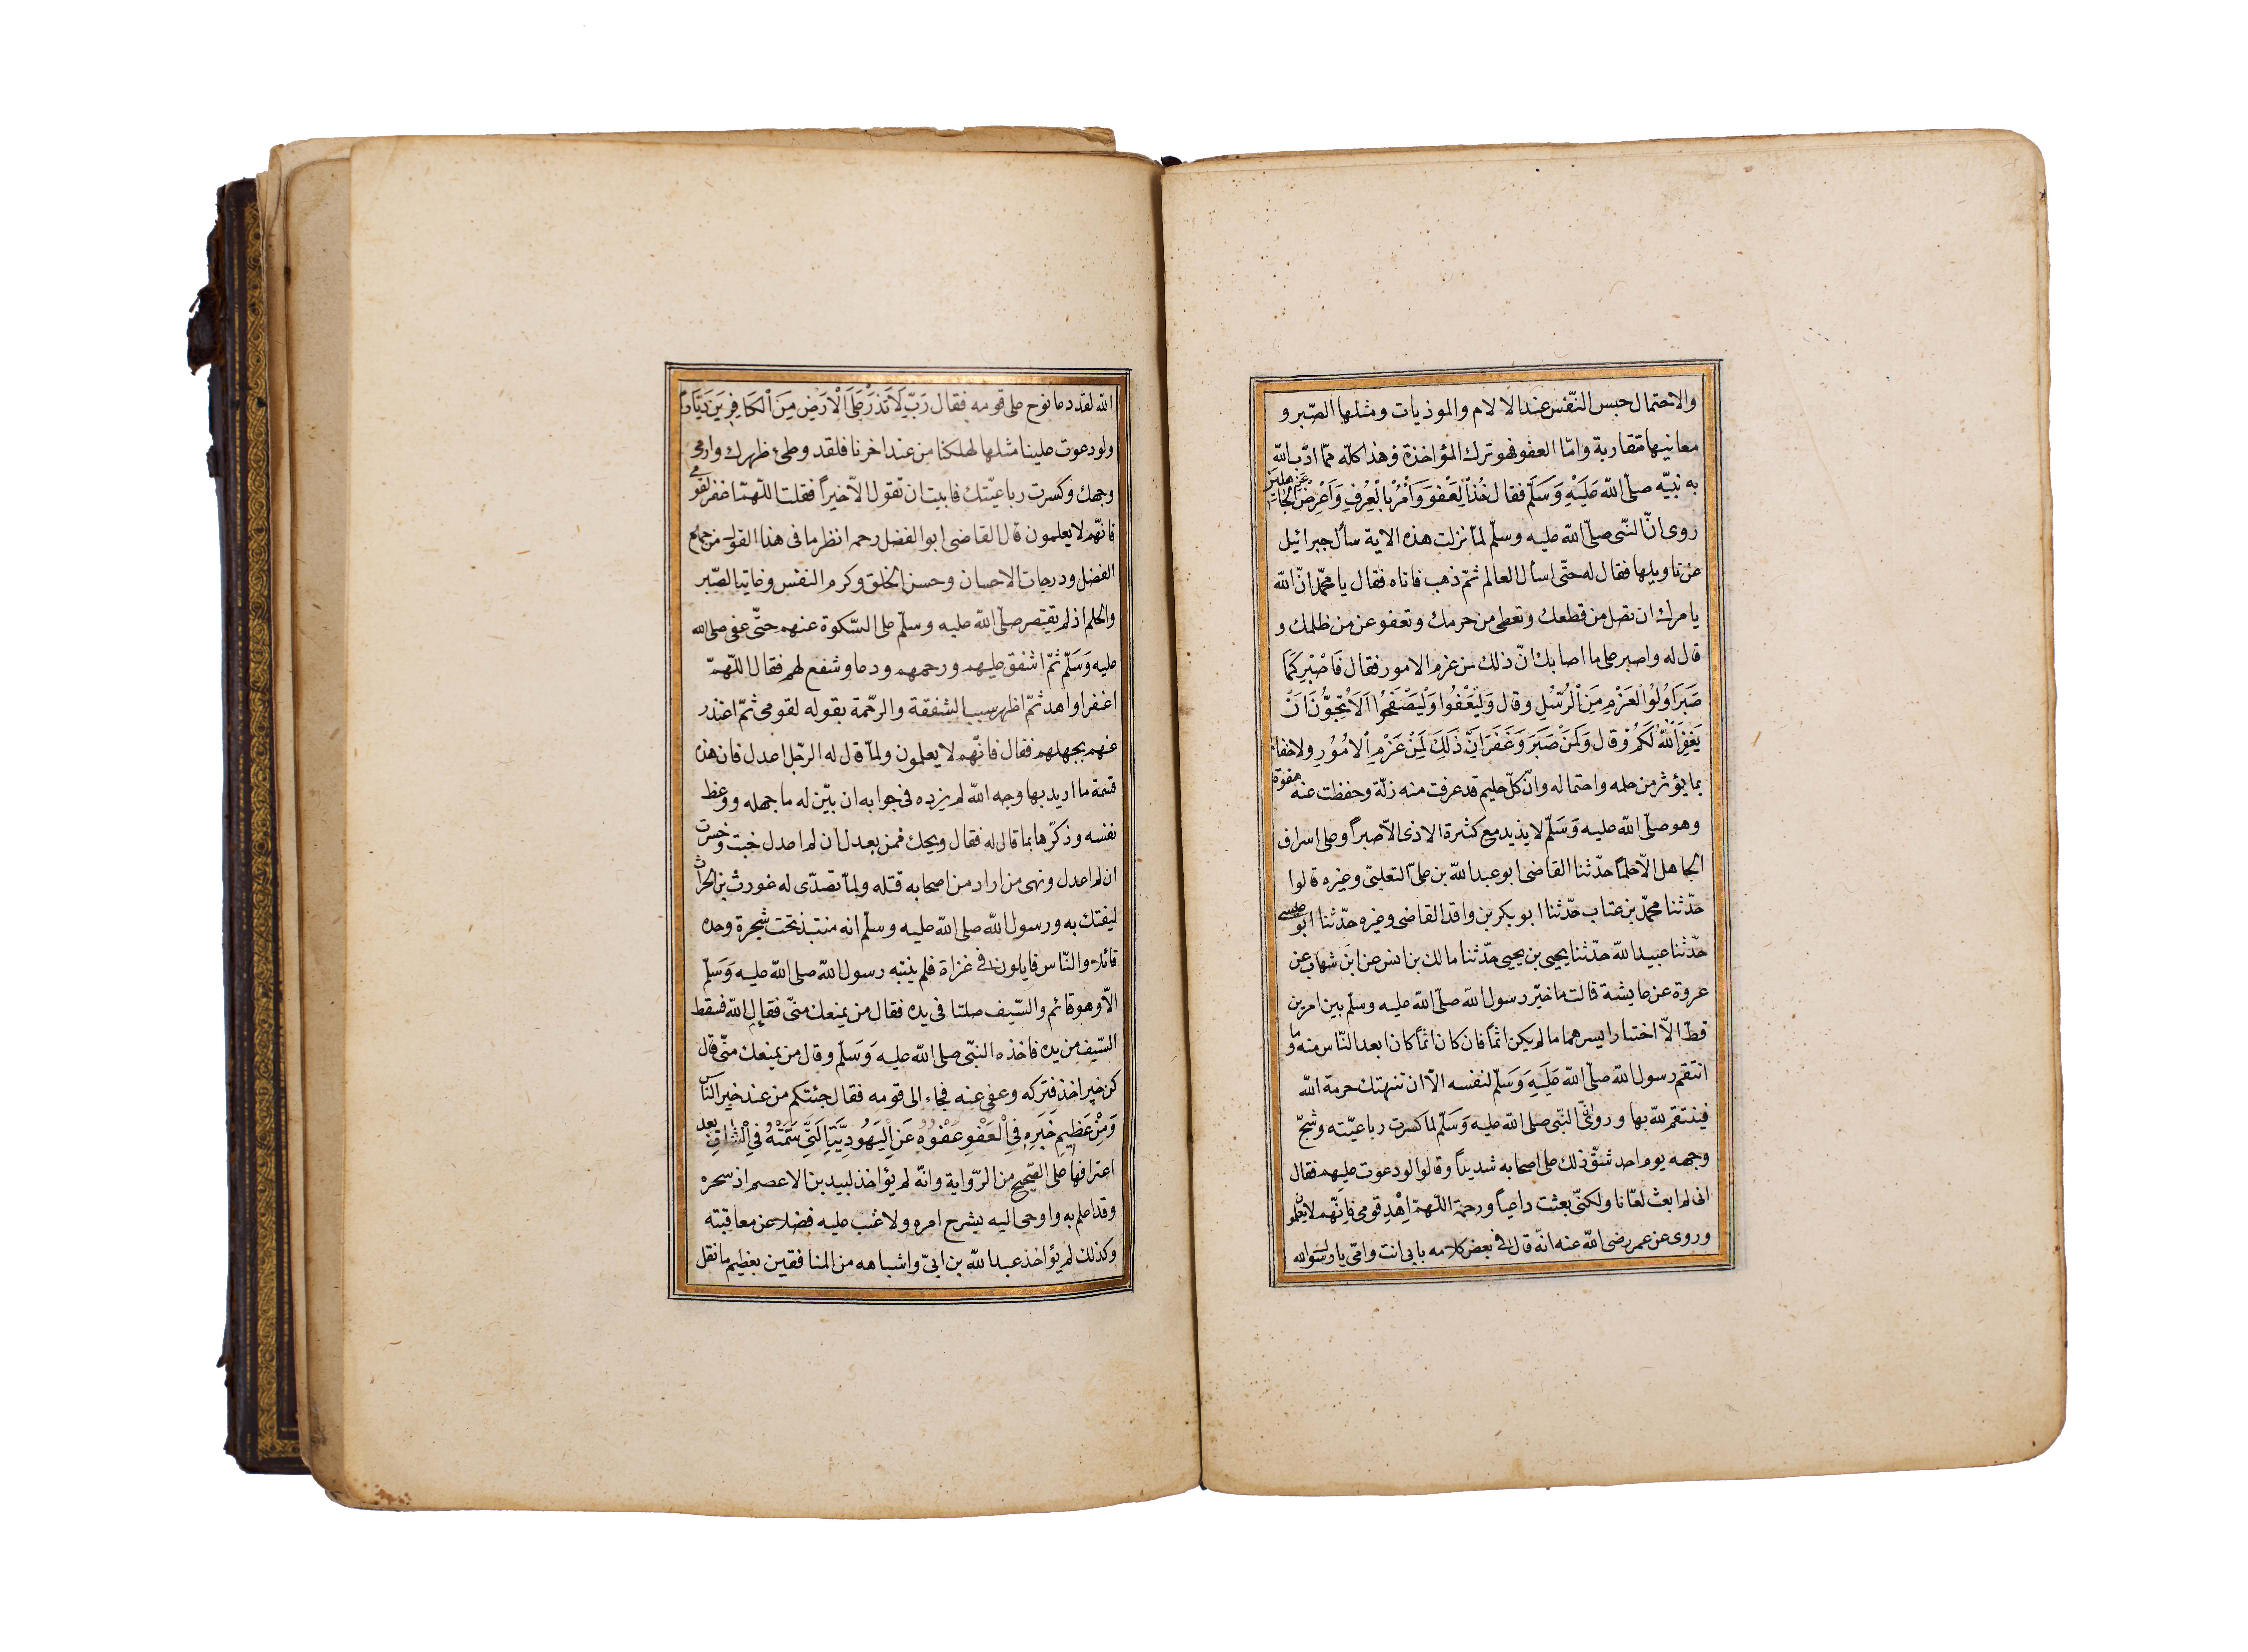 والاحتمال حبس النّفس عند الالام والموذيات ومثلها الصّبر و
معانيها متقاربة وامّا العفو فهو ترك المؤاخذة وهذا كلّه ممّا ادّب الله
به نبيّه صلّى الله عَلَيْهِ وَسَلّم فقال خُذِ الْعَفْوَ وَأْمُرْ بِالْعُرْفِ وَاَعْرِضْ عَنِ الْجَاهِلِينَ
روى انّ النّبى صلّى الله عليه وسلّم لمّا نزلت هذه الاية سأل جبرائيل
عن تاويلها فقال له حتّى اسأل العالم ثمّ ذهب فاتاه فقال يا محمّد انّ الله
يامرك ان تصل من قطعك وتعطى من حرمك وتعفو عن من ظلمك و
قال له واصبر على ما اصابك انّ ذلك من عزم الامور فقال فَاصْبِرْ كَمَا
صَبَرَ اُولُوا الْعَزْمِ مِنَ الْرُسُلِ وقال وَلْيَعْفُوا وَلْيَصْفَحُوا اَلَا تُحِبُّونَ اَنْ
يَغْفِرَ اللّٰهُ لَكُمْ وقال وَلَمَنْ صَبَرَ وَغَفَرَ اِنَّ ذٰلِكَ لَمِنْ عَزْمِ الْاُمُوْرِ ولا خفاء
بما يؤثر من حلمه واحتماله وانّ كلّ حليم قد عرفت منه زلّة وحفظت عنه هفوة
وهو صلّى الله عليه وَسَلّم لا يذيد مع كثرة الاذى الّا صبراً وعلى اسراف
الجاهل الّا حلماً حدّثنا القاضى ابو عبد الله بن علىّ التعلبىّ وغيره قالوا
حدّثنا محمّد بن عتاب حدّثنا ابو بكر بن واقد القاضى وغيره حدّثنا ابو عيسى
حدّثنا عبيد الله حدّثنا يحيى بن يحيى حدّثنا مالك بن انس عن ابن شهاب عن
عروة عن عايشة قالت ما خيّر رسول الله صلّى الله عليه وسلّم بين امرين
قطّ الّا اختار ايسرهما ما لم يكن اثماً فان كان اثماً كان ابعد النّاس منه وما
انتقم رسول الله صلّى الله عَلَيْهِ وَسَلّم لنفسه الّا ان تنتهك حرمة الله
فينتقم لله بها وروى انّ النّبى صلى الله عليه وَسَلّم لما كسرت رباعيّته وشجّ
وجهه يوم احد شقّ ذلك على اصحابه شديداً وقالوا لو دعوت عليهم فقال
انى لم ابعث لعّانا ولكنّى بعثت داعياً ورحمة اللّهمّ اِهْدِ قومى فانّهم لا يعلمون
وروى عن عمر رضى الله عنه انّه قال فى بعض كلامه بابى انت وامّى يا رسول الله
الله لقد دعا نوح على قومه فقال رَبّ لَا تَذَرْ عَلَى الْاَرْضِ مِنَ الْكَافِرِينَ دَيَّاراً
ولو دعوت علينا مثلها لهلكنا من عند اخرنا فلقد وطئ ظهرك وادمى
وجهك وكسرت رباعيّتك فابيت ان تقول الّا خيراً فقلت اللّهمّ اغفر لقومى
فانّهم لا يعلمون قال القاضى ابو الفضل رحمه انظر ما فى هذا القول من جماع
الفضل ودرجات الاحسان وحسن الخلق وكرم النفس وغاية الصّبر
والحلم اذ لم يقتصر صلّى الله عليه وسلّم على السّكوة عنهم حتّى عفى صلى الله
عليه وَسَلّم ثمّ اشفق عليهم ورحمهم ودعا وشفع لهم فقال اللّهمّ
اغفر او اهد ثمّ اظهر سبب الشفقة والرّحمة بقوله لقومى ثمّ اعتذر
عنهم بجهلهم فقال فانّهم لا يعلمون ولمّا قال له الرّجل اعدل فان هذه
قسمة ما اريد بها وجه الله لم يزده فى جوابه ان بيّن له ما جهله ووعظ
نفسه وذكّرها بما قال له فقال ويحك فمن يعدل ان لم اعدل خبت وخسرت
ان لم اعدل ونهى من اراد من اصحابه قتله ولمّا تصدّى له غورث بن الحراث
ليفتك به ورسول الله صلى الله عليه وسلّم انه منتبذ تحت شجرة وحده
قائلا والنّاس قايلون فى غزاة فلم ينتبه رسول الله صلى الله عليه وَسَلّم
الّا وهو قائم والسّيف صلتا فى يده فقال من يمنعك منّى فقال الله فسقط
السّيف من يده فاخذه النبّى صلى الله عليه وَسَلّم وقال من يمنعك منّى قال
كن خير اخذ فتركه وعفى عنه فجاء الى قومه فقال جئتكم من عند خير النّاس
وَمِنْ عَظِيمِ خَبَرِهِ فِى الْعَفْوِ عَفْوُهُ عَنِ الْيَهُودِيَّةِ الَّتِى سَمَّتْهُ فِى الْشَاةِ بعد
اعترافها على الصّحيح من الرّواية وانّه لم يؤاخذ لبيد بن الاعصم اذ سحره
وقد اعلم به واوحى اليه بشرح امره ولا عتب عليه فضلا عن معاقبته
وكذلك لم يؤاخذ عبد الله بن ابىّ واشباهه من المنافقين بعظيم ما نقل